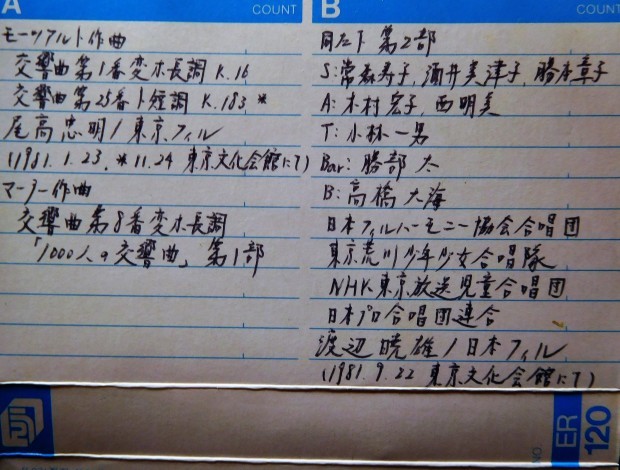 A COUNT
モーツァルト作曲
交響曲第1番変ホ長調 K.16
交響曲第25番ト短調 K.183 *
尾高忠明/東京フィル
(1981.1.23. *11.24 東京文化会館にて)
マーラー作曲
交響曲第8番変ホ長調
「1000人の交響曲」第1部
B COUNT
同左下 第2部
S:常森寿子,酒井美津子,勝本章子
A:木村宏子,西明美
T:小林一男
Bar:勝部太
B:高橋大海
日本フィルハーモニー協会合唱団
東京荒川少年少女合唱隊
NHK東京放送児童合唱団
日本プロ合唱団連合
渡辺暁雄/日本フィル
(1981.9.22 東京文化会館にて)
NO
ER
120